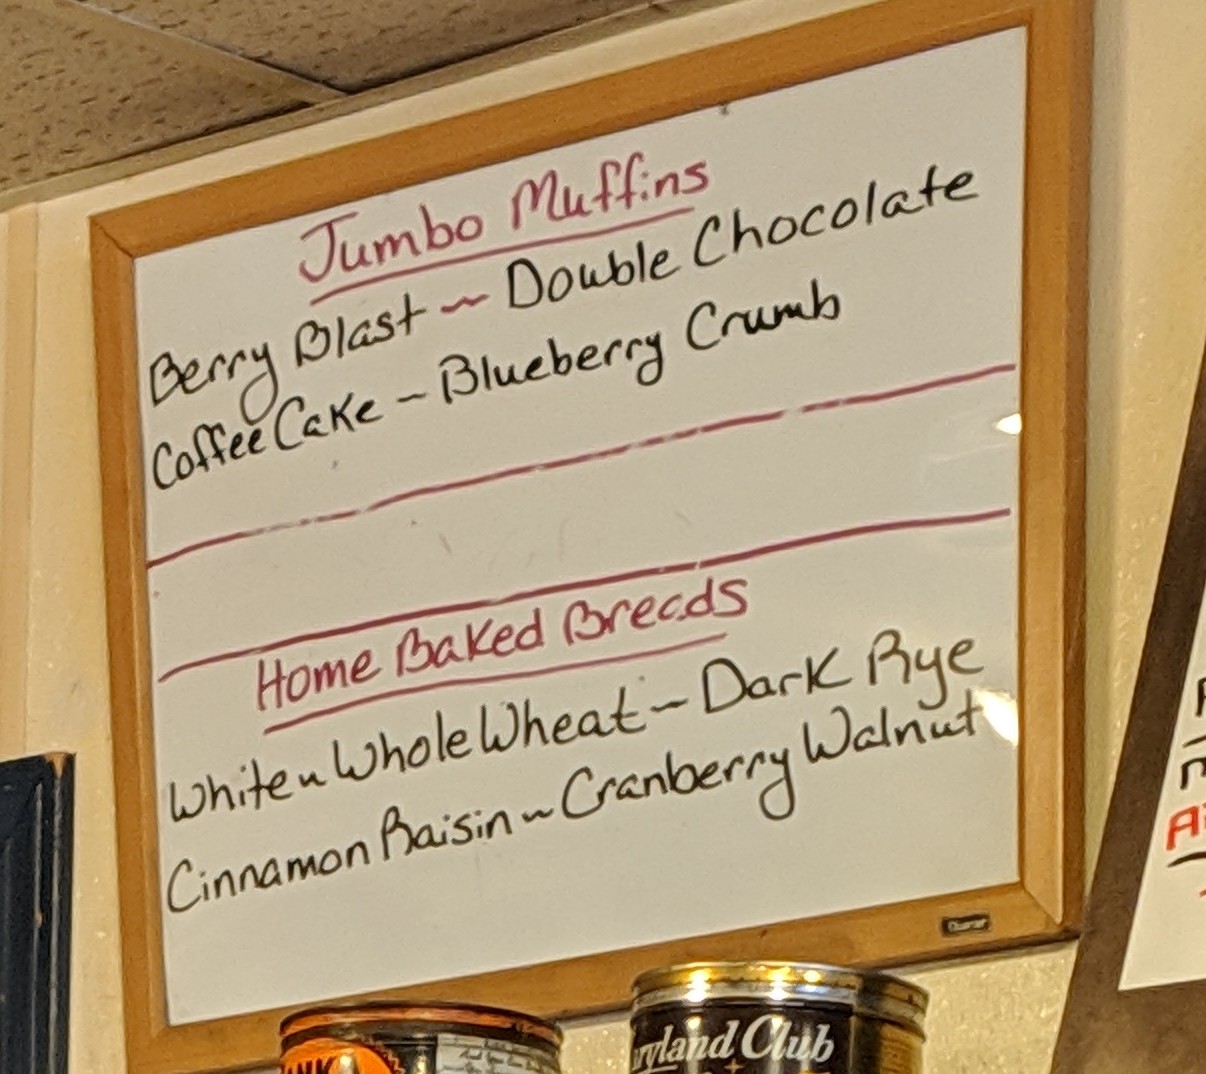 Jumbo Muffins
Berry Blast ~ Double Chocolate
Coffee Cake - Blueberry Crumb
Home Baked Breads
White ~ Whole Wheat - Dark Rye
Cinnamon Raisin ~ Cranberry Walnut
Club